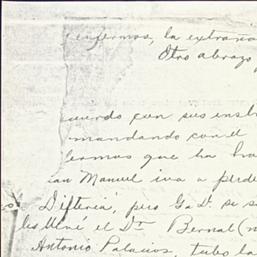 enfermos, la extraña
Otro abrazo
uerdo con sus inst
mandando con el
ermos que ha ha
an Manuel iva a perde
Difteria, pero G. a D. se s
el Dr Bernal (
Antonio Palacios, tubo la